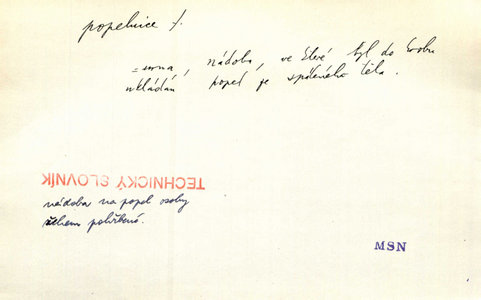 popelnice f.
= urna, nádoba, ve které byl do hrobu
vkládán popel ze spáleného těla.
TECHNICKÝ SLOVNÍK
nádoba na popel osoby
žehem pohřbené.
MSN